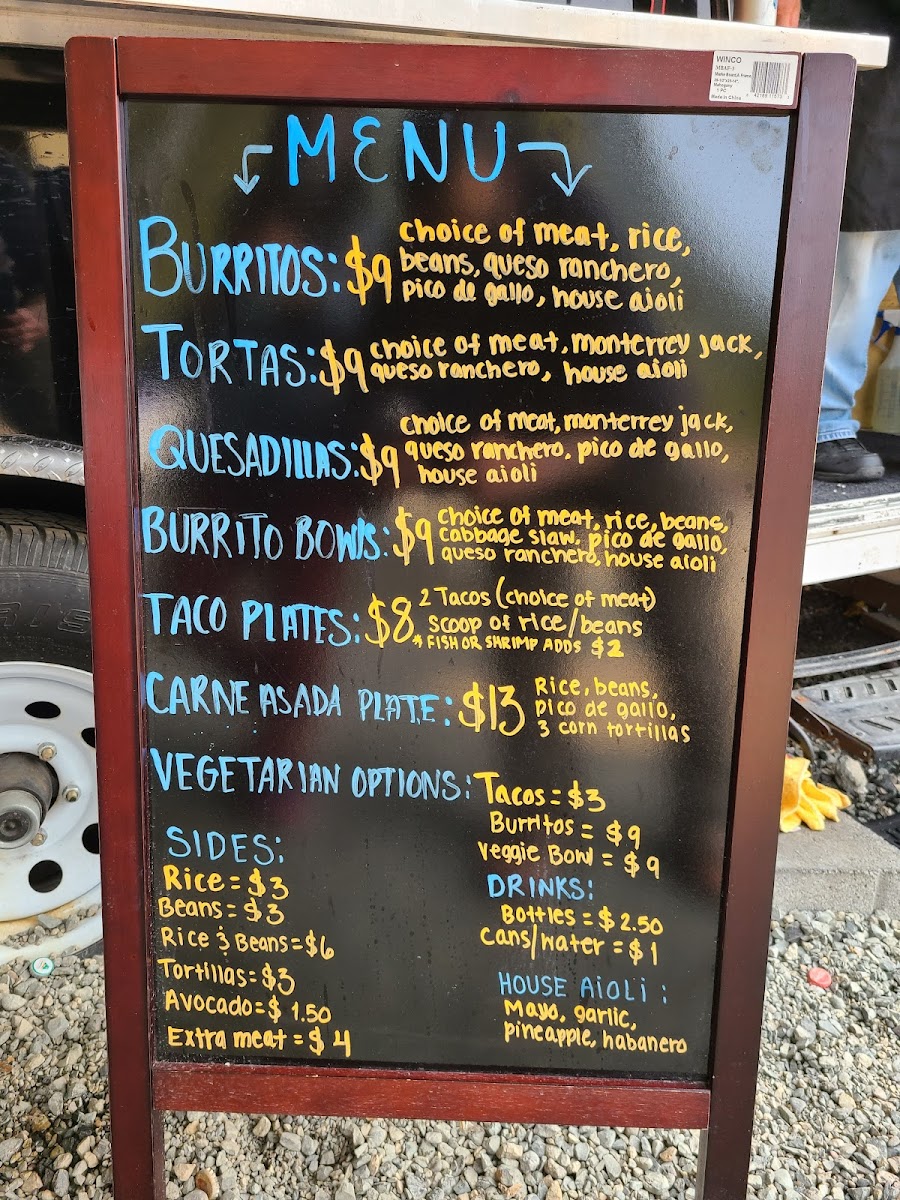 WINCO
Made in China
MENU
BURRITOS: $9 choice of meat, rice,
beans, queso ranchero,
pico de gallo, house aioli
TORTAS: $9 choice of meat, monterrey jack,
queso ranchero, house aioli
QUESADILLAS: $9 choice of meat, monterrey jack,
queso ranchero, pico de gallo,
house aioli
BURRITO BOWLS: $9 choice of meat, rice, beans,
cabbage slaw, pico de gallo,
queso ranchero, house aioli
TACO PLATES: $8 2 Tacos (choice of meat)
scoop of rice/beans
* FISH OR SHRIMP ADDS $2
CARNE ASADA PLATE: $13 Rice, beans,
pico de gallo,
3 corn tortillas
VEGETARIAN OPTIONS: Tacos = $3
Burritos = $9
Veggie Bowl = $9
SIDES:
Rice = $3
Beans = $3
Rice & Beans = $6
Tortillas = $3
Avocado = $1.50
Extra meat = $4
DRINKS:
Bottles = $2.50
Cans/water = $1
HOUSE AIOLI:
Mayo, garlic,
pineapple, habanero